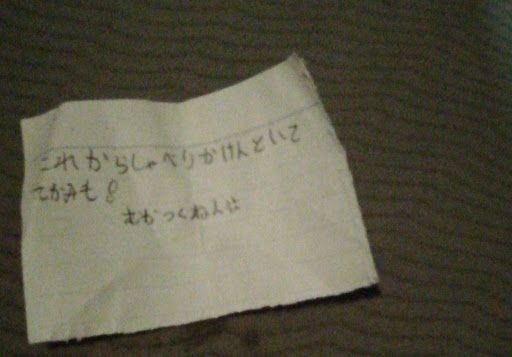 これからしゃべりかけんといて
てがみも!
むかつくねんな